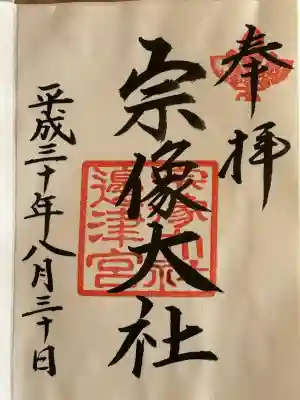 奉拝
宗像大社
宗像大社
邉津宮
平成三十年八月三十日